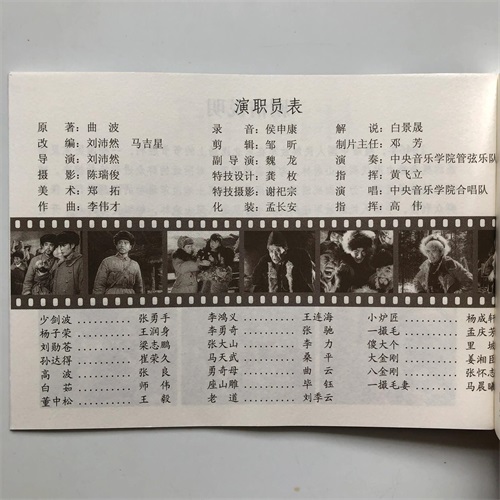 演职员表
原 著：曲 波 录 音：侯申康 解 说：白景晟
改 编：刘沛然 马吉星 剪 辑：邹 昕 制片主任：邓 芳
导 演：刘沛然 副 导 演：魏 龙 演 奏：中央音乐学院管弦乐队
摄 影：陈瑞俊 特技设计：龚 枚 指 挥：黄飞立
美 术：郑 拓 特技摄影：谢祀宗 演 唱：中央音乐学院合唱队
作 曲：李伟才 化 装：孟长安 指 挥：高 伟
少剑波 .......... 张勇手 李鸿义 .......... 王连海 小炉匠 .......... 杨成轩
杨子荣 .......... 王润身 李勇奇 .......... 张 驰 一撮毛 .......... 孟庆芳
刘勋苍 .......... 梁志鹏 张大山 .......... 李 力 傻大个 .......... 里 坡
孙达得 .......... 崔荣久 马天武 .......... 桑 平 大金刚 .......... 姜湘臣
高 波 .......... 张 良 勇奇母 .......... 曲 云 八金刚 .......... 张怀志
白 茹 .......... 师 伟 座山雕 .......... 毕 钰 一撮毛妻 .......... 马晨曦
董中松 .......... 王 毅 老 道 .......... 刘季云